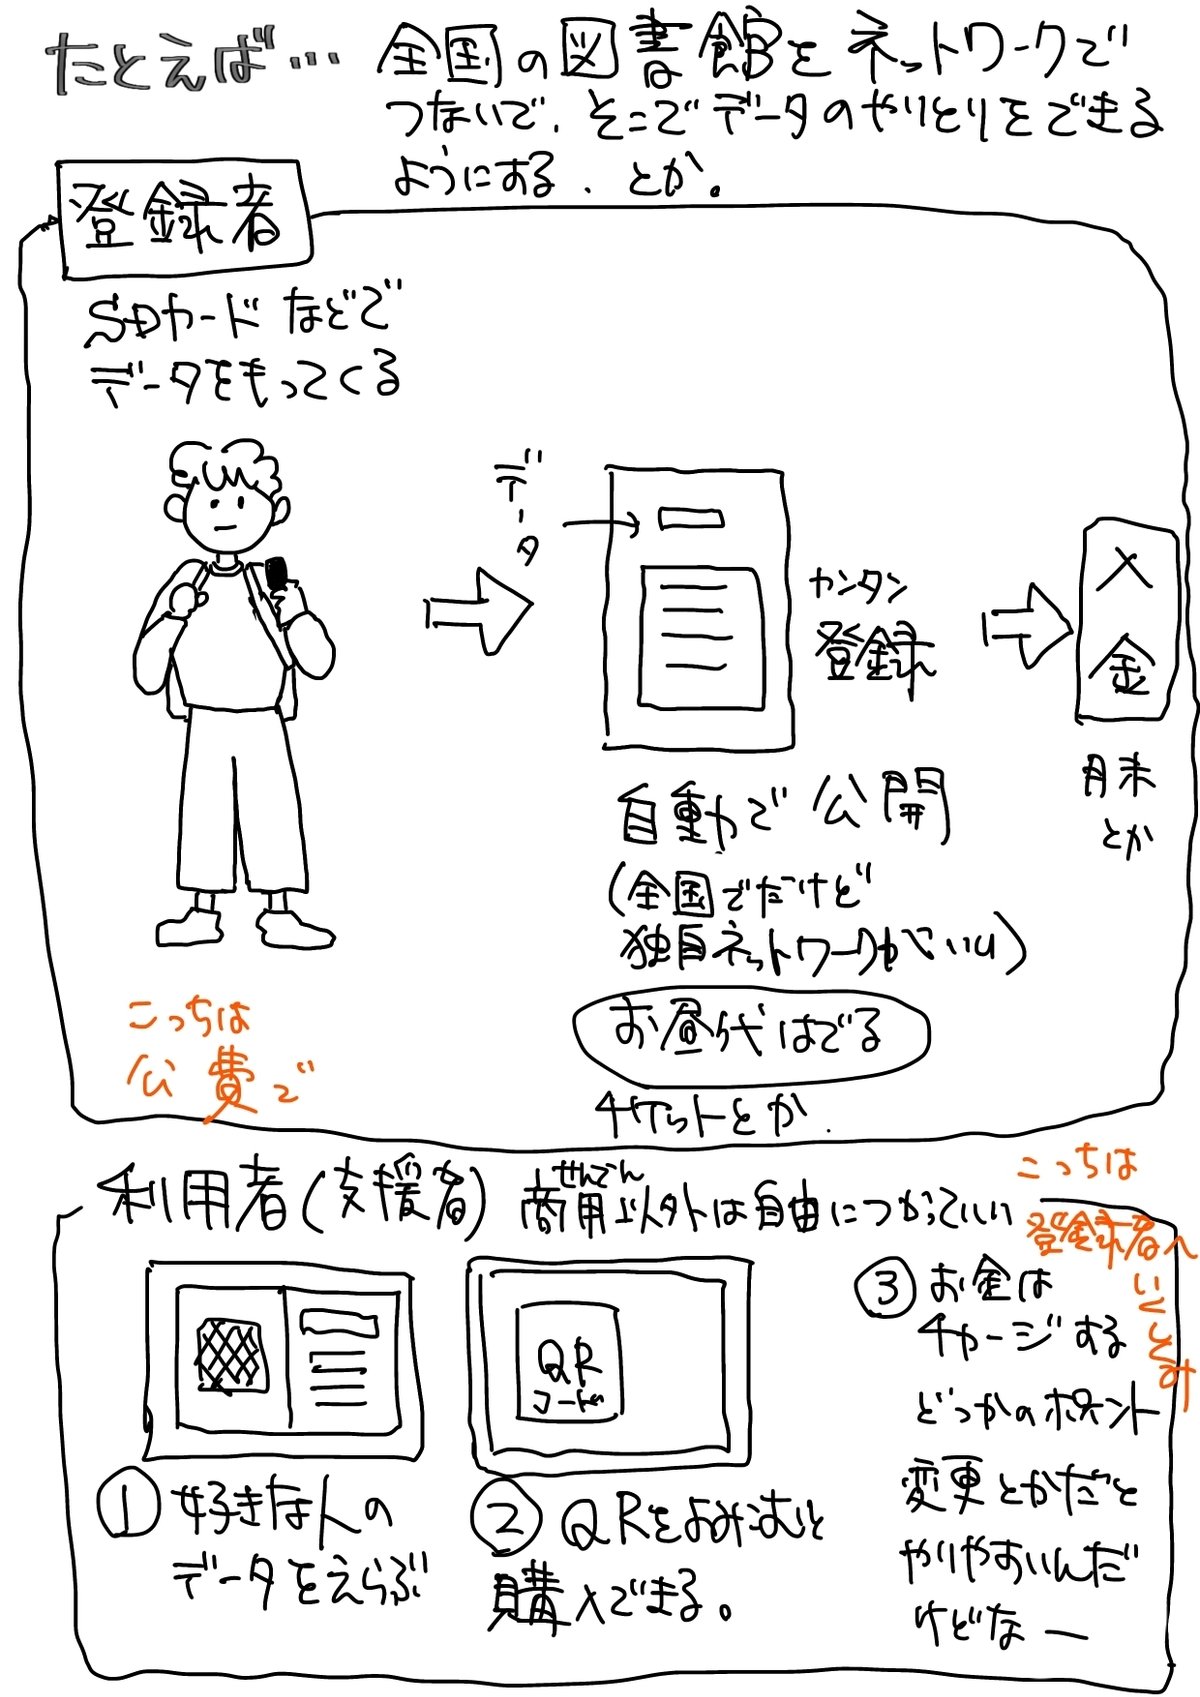 たとえば…
全国の図書館をネットワークで
つないで、そこでデータのやりとりをできる
ようにする、とか。
登録者
SDカードなどで
データをもってくる
データ
カンタン
登録
入金
月末
とか
自動で公開
(全国でだけど
独自ネットワークがいい)
お昼代はでる
チケットとか
こっちは
公費で
利用者(支援者)
せんでん
商用以外は自由につかっていい
こっちは
登録者へ
①好きな人の
データをえらぶ
QR
コード
②QRをよみこむと
購入できる。
③お金は
チャージする
どっかのポイント
変更とかだと
やりやすいんだ
けどなー